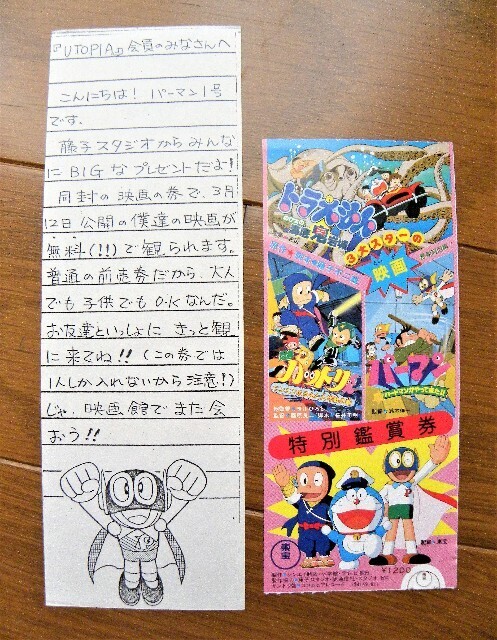 『UTOPIA』会員のみなさんへ
こんにちは! パーマン1号
です。
藤子スタジオからみんな
にBIGなプレゼントだよ!
同封の映画の券で、3月
12日公開の僕達の映画が
無料(!!)で観られます。
普通の前売券だから、大人
でも子供でもO.Kなんだ。
お友達といっしょに きっと観
に来てね!! (この券では
1人しか入れないから注意!)
じゃ、映画館でまた会
おう!!
ドラえもん
3大スターの
映画
ハットリくん
パーマン
バードマンがやって来た!!
特別鑑賞券
東宝
配給・東宝
¥1200